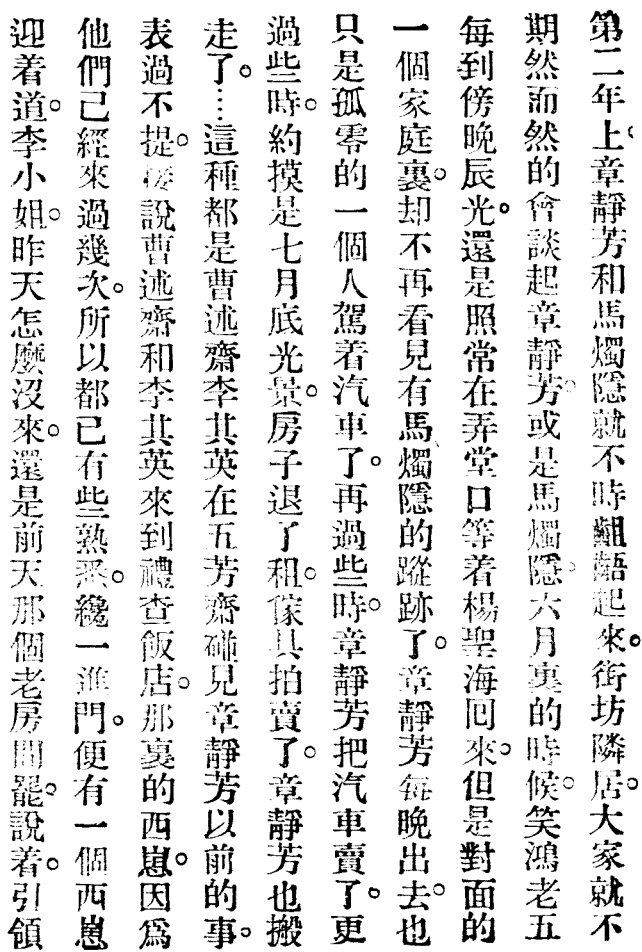 第二年上章靜芳和馬燭隱就不時齟齬起來。街坊隣居。大家就不
期然而然的會談起章靜芳。或是馬燭隱。六月裏的時候。笑鴻老五
每到傍晚辰光。還是照常在弄堂口等着楊聖海囘來。但是對面的
一個家庭裏。却不再看見有馬燭隱的蹤跡了。章靜芳每晚出去。也
只是孤零的一個人駕着汽車了。再過些時。章靜芳把汽車賣了。更
過些時。約摸是七月底光景。房子退了租。傢具拍賣了。章靜芳也搬
走了。…這種都是曹述齋李其英在五芳齋碰見章靜芳以前的事。
表過不提。接說曹述齋和李其英來到禮查飯店。那裏的西崽。因爲
他們已經來過幾次。所以都已有些熟悉。纔一進門。便有一個西崽
迎着道。李小姐。昨天怎麼沒來。還是前天那個老房間罷。說着。引領